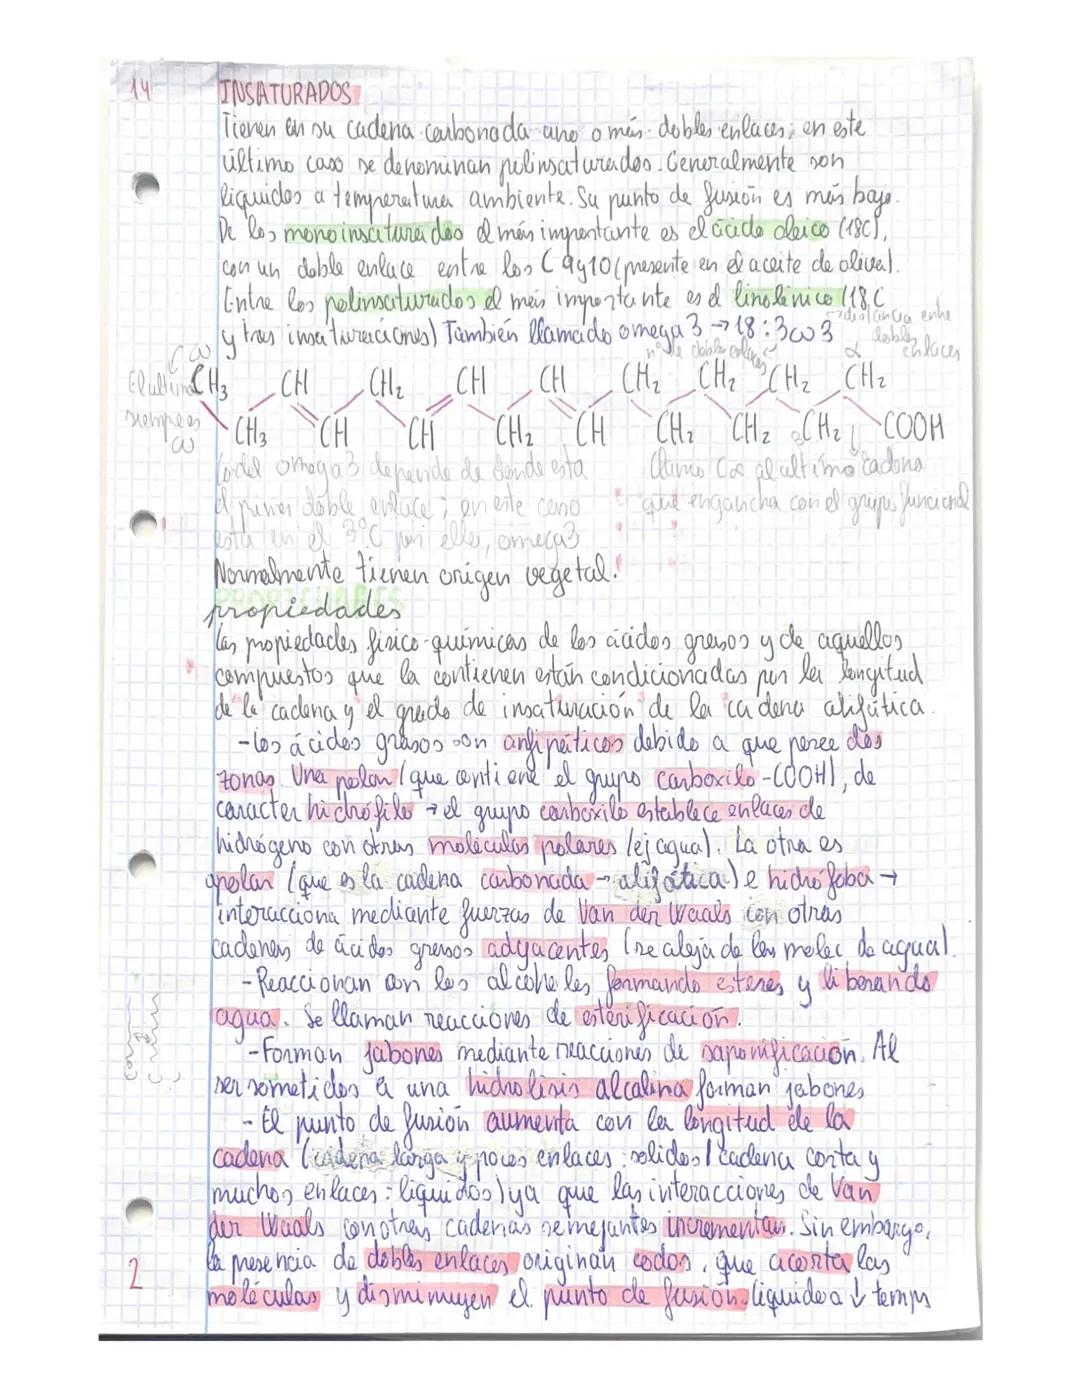 14
INSATURADOS
Tienen en su cadena carbonada uno o más dobles enlaces; en este
último caso se denominan polinsaturados. Generalmente son
líquidos a temperatura ambiente. Su punto de fusión es más bajo.
De los monoinsaturados el más importante es el ácido oleico (18C),
con un doble enlace entre los C 9 y 10 (presente en el aceite de oliva).
Entre los polinsaturados el más importante es el linolénico (18C
y tres insaturaciones) También llamado omega 3 → 18:3ω3
→ distancia entre
dobles enlaces
nº de dobles enlaces
ω
α
El último
siempre es
ω
CH3 CH CH2 CH CH CH2 CH2 CH2 CH2
CH3 CH CH CH2 CH CH2 CH2 CH2 COOH
Lo del omega 3 depende de donde esta
el primer doble enlace; en este caso
esta en el 3ºC por ello, omega 3
llamo Cα al último cadena
que engancha con el grupo funcional
Normalmente tienen origen vegetal.
propiedades
Las propiedades físico-químicas de los ácidos grasos y de aquellos
compuestos que la contienen están condicionadas por la longitud
de la cadena y el grado de insaturación de la cadena alifática.
-Los ácidos grasos son anfipáticos debido a que posee dos
zonas. Una polar (que contiene el grupo carboxilo -COOH), de
caracter hidrófilo → el grupo carboxilo establece enlaces de
hidrógeno con otras moléculas polares (ej agua). La otra es
apolar (que es la cadena carbonada - alifática) e hidrófoba →
interacciona mediante fuerzas de Van der Waals con otras
cadenas de ácidos grasos adyacentes (se aleja de las molec de agua).
-Reaccionan con los alcoholes formando esteres y liberando
agua. Se llaman reacciones de esterificación.
-Forman jabones mediante reacciones de saponificación. Al
ser sometidos a una hidrolisis alcalina forman jabones
- El punto de fusión aumenta con la longitud de la
cadena (cadena larga y pocos enlaces: solidos / cadena corta y
muchos enlaces: líquidos) ya que las interacciones de Van
der Waals con otras cadenas semejantes incrementan. Sin embargo,
la presencia de dobles enlaces originan codos, que acorta las
moléculas y disminuyen el punto de fusión. liquido a ↓ temps
2